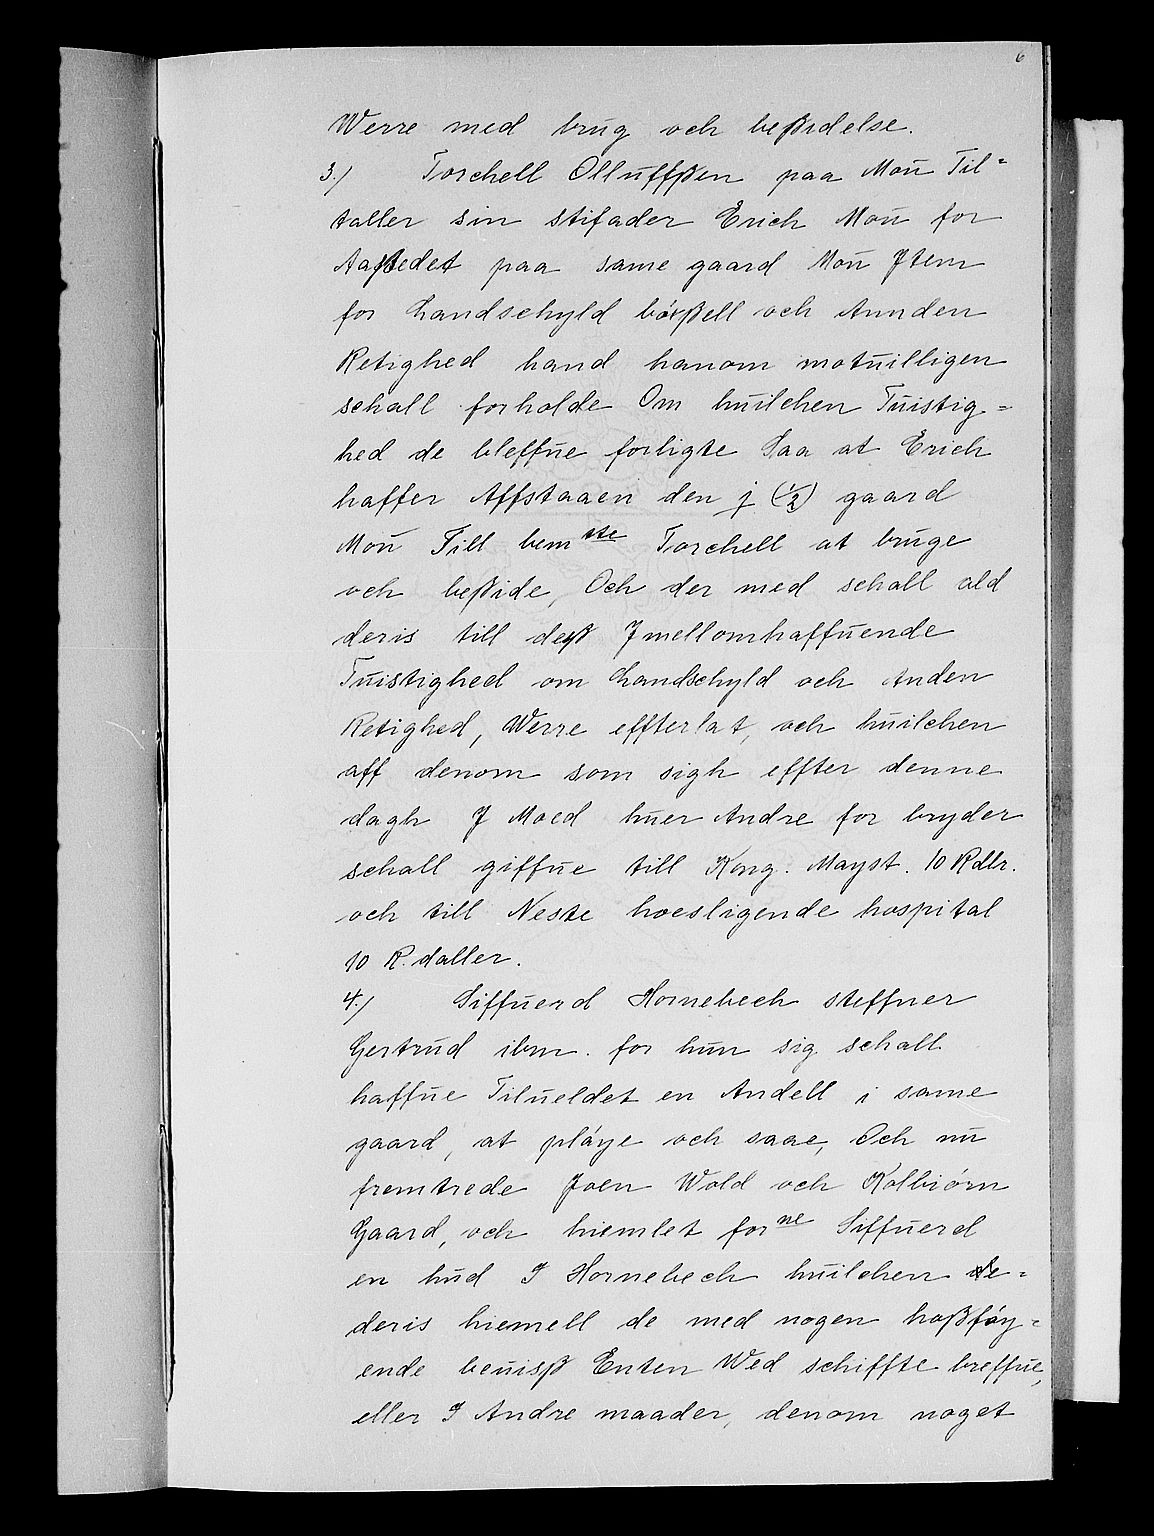 6
Werre med brug och beßidelse.
3./ Torchell Olluffßen paa Moū Til=
taller sin stifader Erich Moū for
Aaßtedet paa same gaard Moū Jtem
for Landschyld bórßell och Annden
Retighed hand hanom motūilligen
schall forholde Om hūilchen Tūistig=
hed de bleffūe forligte Saa at Erich
haffer Affstaaen den j (½) gaard
Moū Till bemᵗᵉ Torchell at brūge
och beßide, Och der med schall ald
deris till deß Jmellomhaffūende
Tūistighed om Landschyld och Anden
Retighed, Werre effterlat, och hūilchen
aff denom som sigh effter denne
dagh J Moed hūer Andre for bryder
schall giffūe till Kong. Mayst. 10 Rdlr.
och till Neste hoesligende hospital
10 R. daller.
4./ Siffūerd Hornebech steffner
Gertrūd ibm. for hūn sig schall
haffūe Tilūeldet en Andell i same
gaard, at pláye och saae, Och nū
fremtrede Joen Wold och Kolbiórn
Gaard, och hiemlet forⁿᵉ Siffūerd
en hūd J Hornebech hūilchen de=
deris hiemell de med nogen haßfóy=
ende beūisß Enten Wed schiffte breffūe,
eller J Andre maader, denom noget